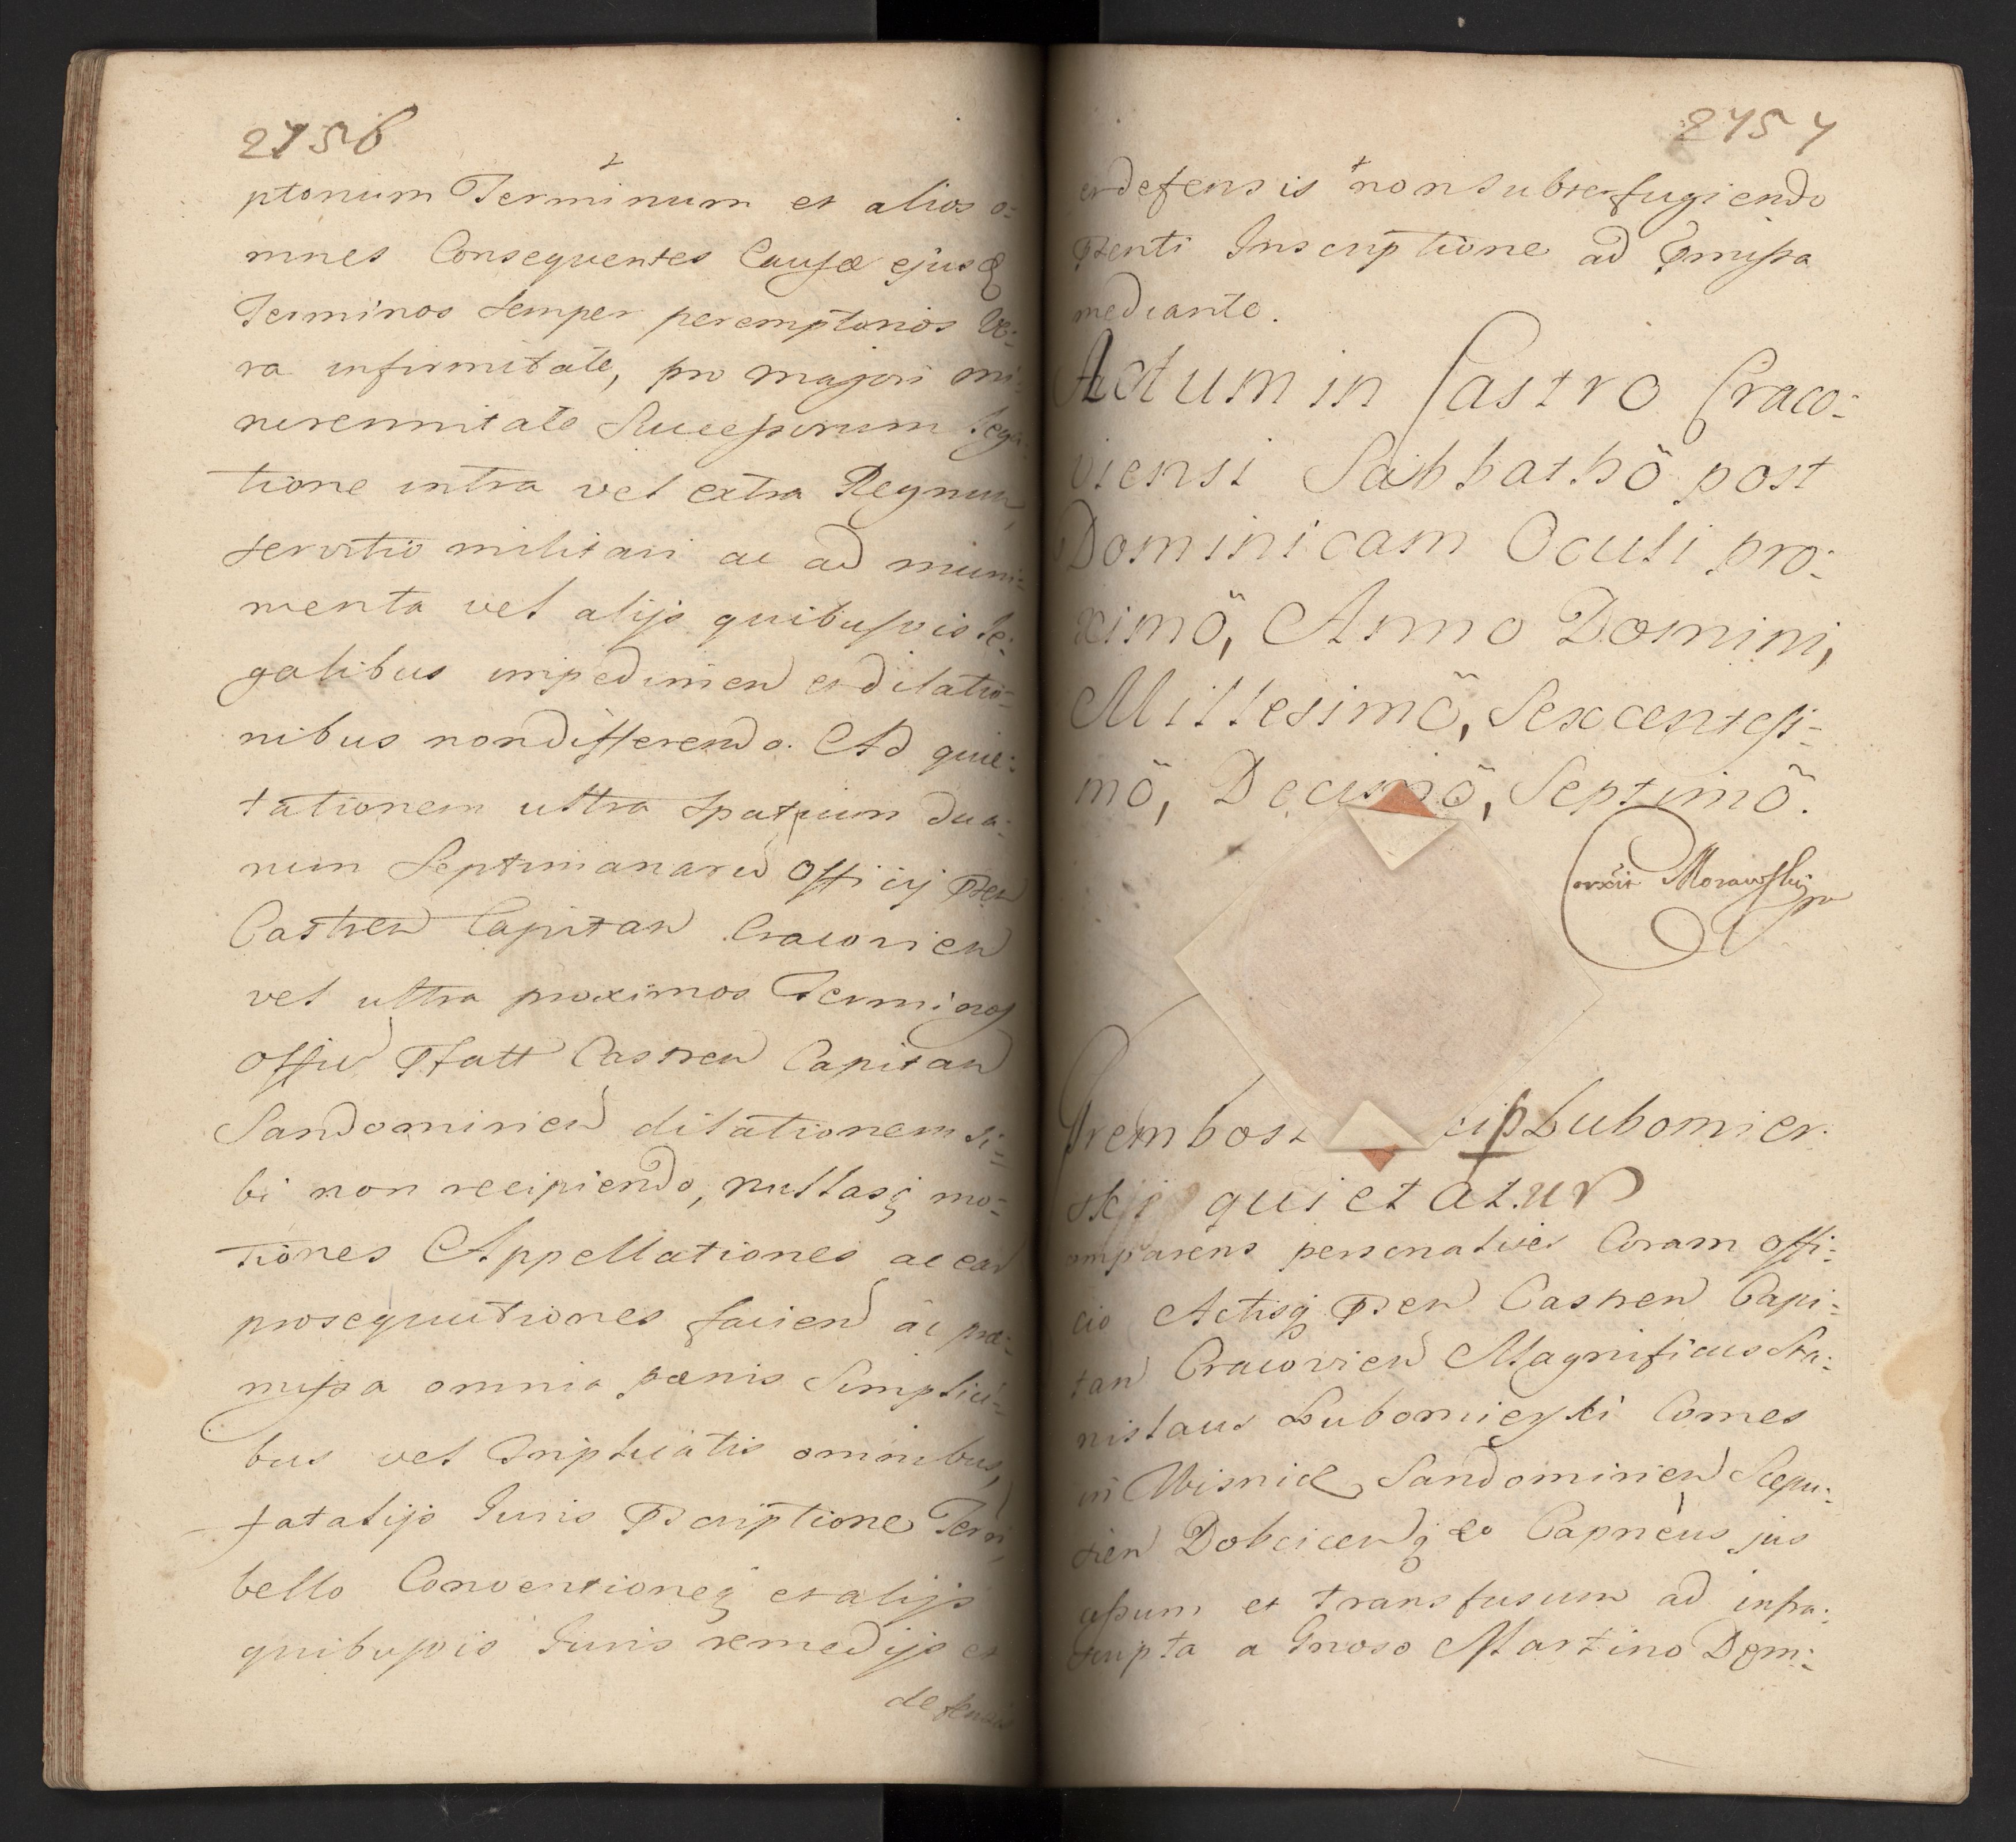 2756
ptorium Terminum et alios o:
mnes Consequentes Causæ ejusq
Terminos semper peremptorios Ve:
ra infirmitate, pro majori mi
norennitate Successorum Lega
tione intra vel extra Regnum,
servitio militari ac ad muni:
menta vel alijs quibusvis le:
galibus impedimen et dilatio:
nibus non differendo. Ad quie:
tationem ultra spatium dua:
rum Septimanaru Officij Psen
Castren Capitan Cracovien
vel ultra proximos Terminos
Offici Pfatt Castren Capitan
Sandomirien dilationem si:
bi non recipiendo, nullasq mo:
tiones Appellationes ac ear
prosequutiones facien ac præ:
missa omnia pænis Simplici:
bus vel Triplicatis omnibus,
fatalijs Juris Pscriptione Terri,
bello Conventioneq et alijs
quibusvis Juris remedijs et
defensis
2757
et defensis non subterfugiendo
Psenti Inscriptione ad Pmissa
mediante.
Actum in Castro Craco:
viensi Sabbathô post
Dominicam Oculi pro:
ximô, Anno Domini,
Millesimô, Sexcentesi:
mô, Decimô, Septimô.
Corrxit Morawski
Trembos cip Lubomier:
skj quietatur
omparens personaliter Coram Offi:
cio Actisq Psen Castren Capi:
tan Cracovien Magnificus Sta:
nislaus Lubomierski Comes
in Wisnicz Sandomirien Scepu:
sien Dobcicenq &c Capneus jus
cessum et transfusum ad infra:
scripta a Gnoso Martino Dem: